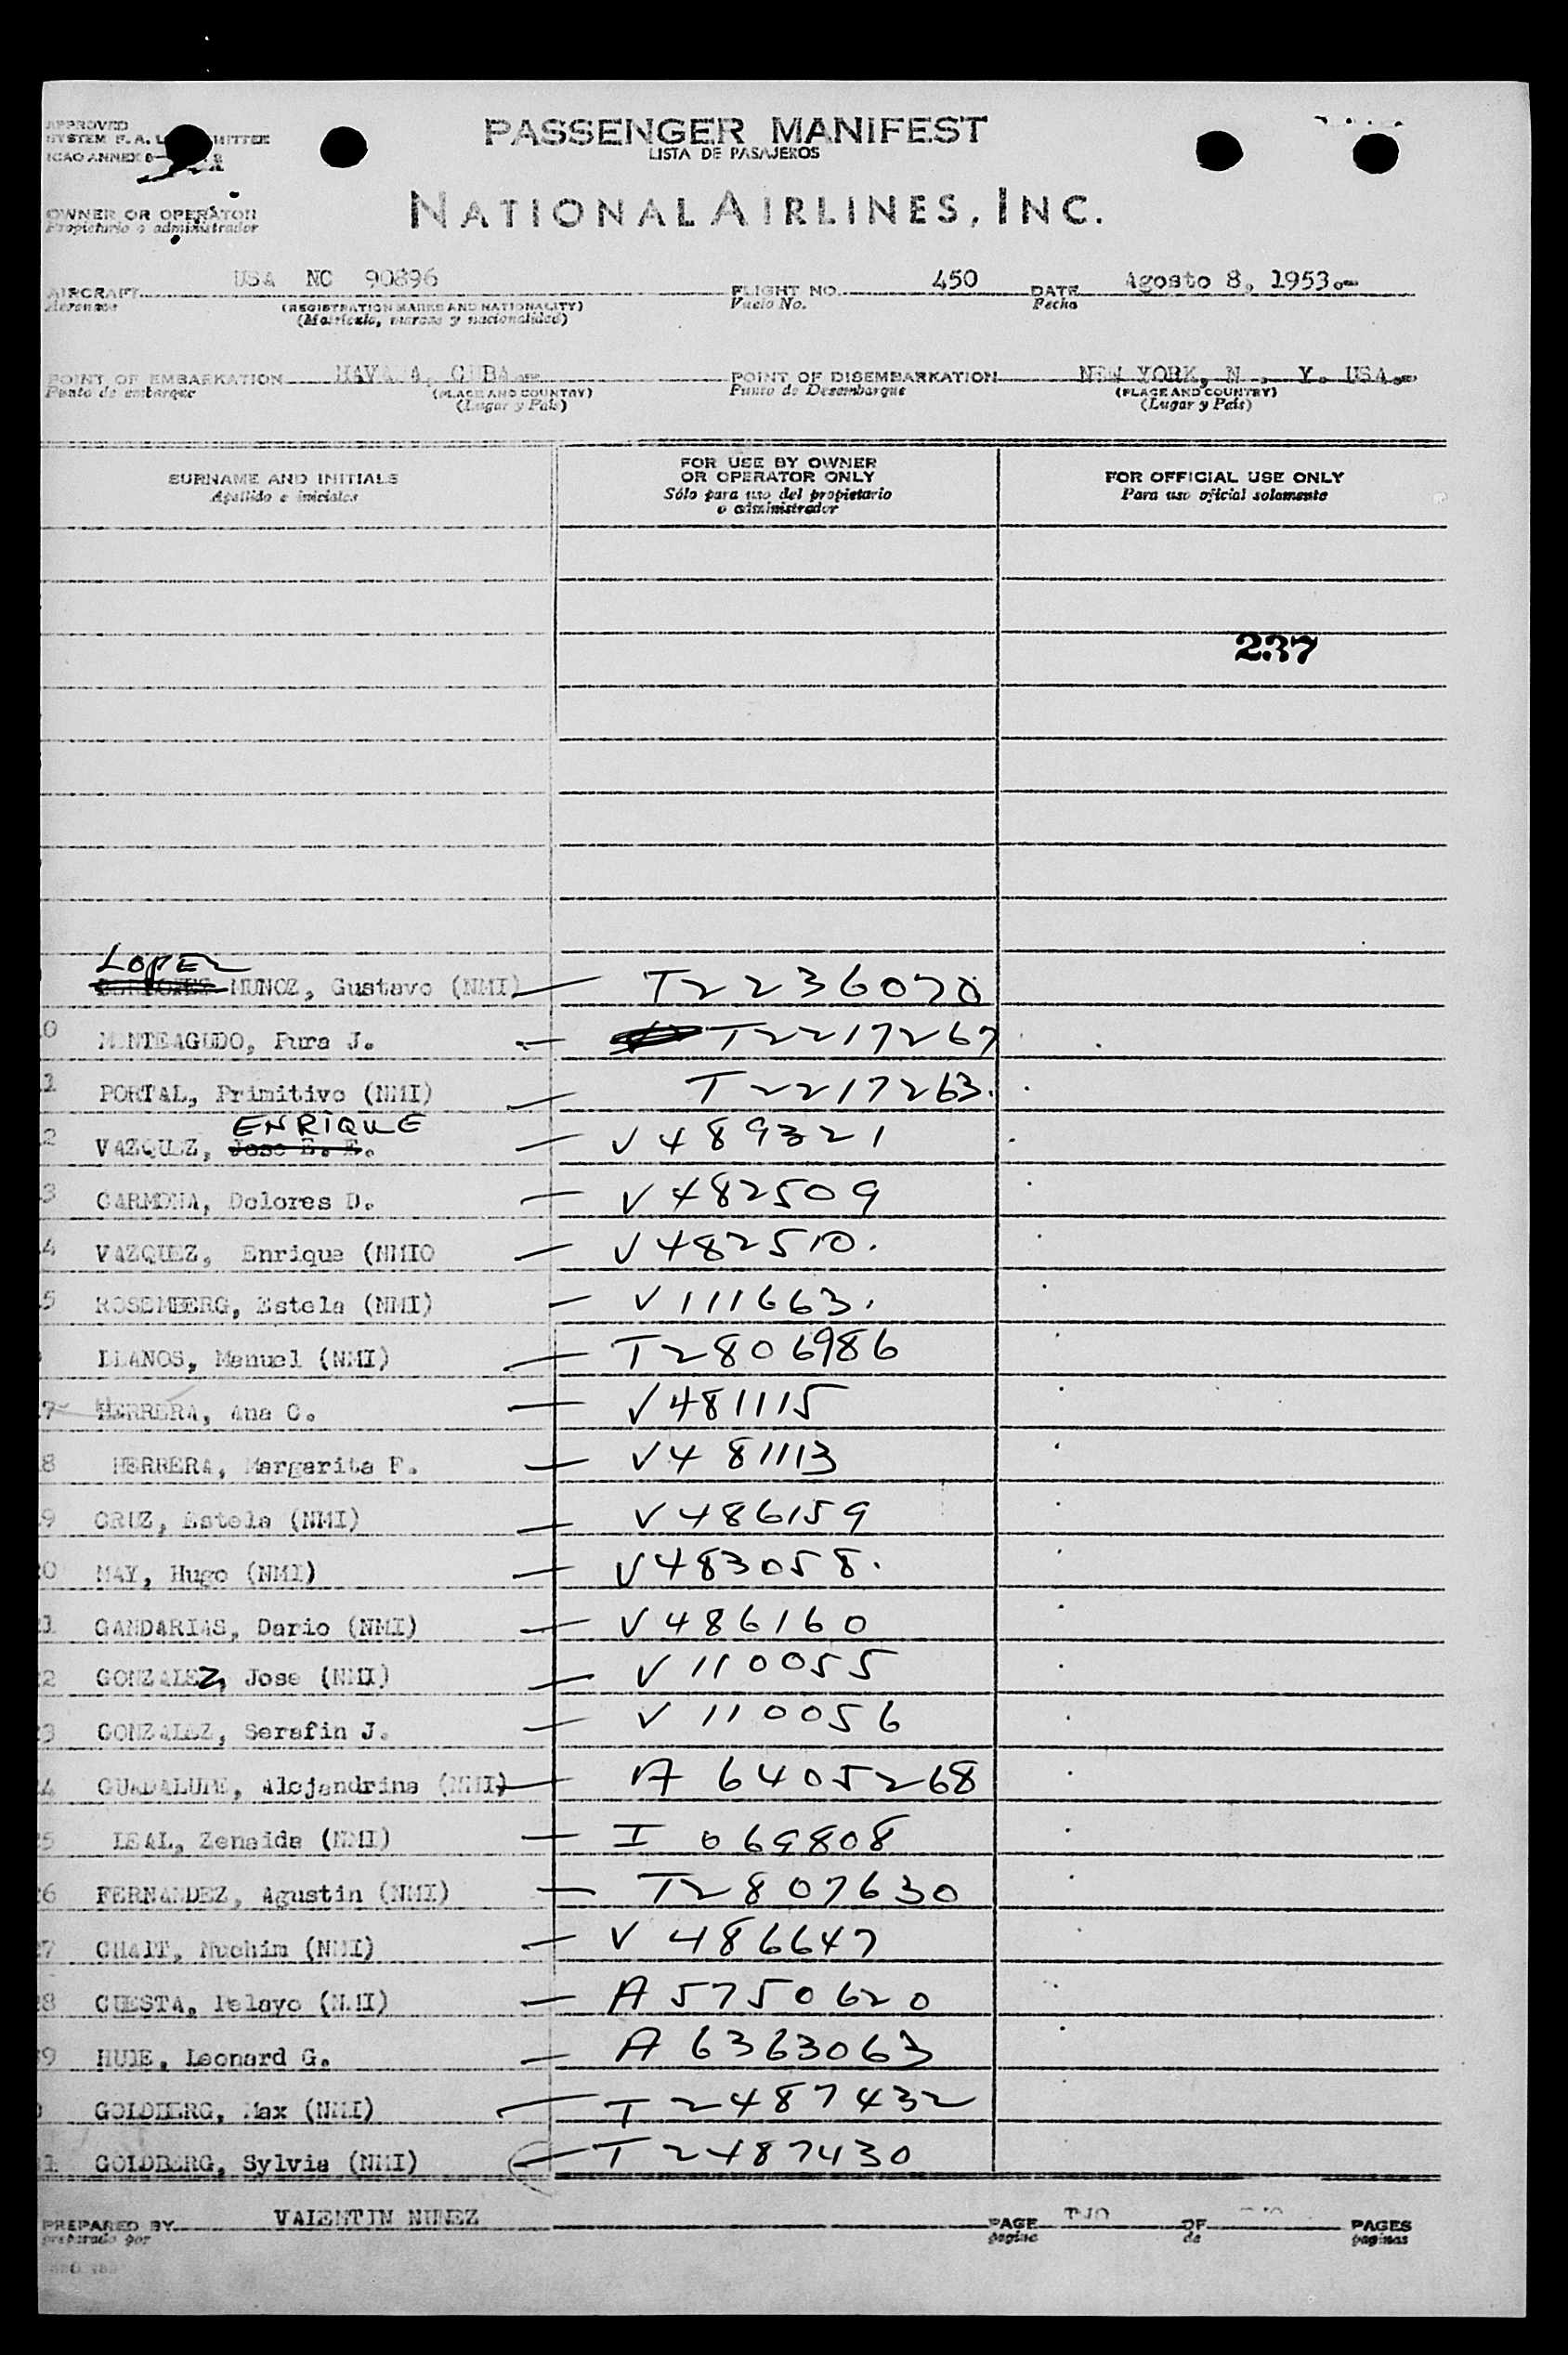 APPROVED
SYSTEM F. A. L. COMMITTEE
ICAO ANNEX 9
PASSENGER MANIFEST
LISTA DE PASAJEROS
OWNER OR OPERATOR
Propietario o administrador
NATIONAL AIRLINES, INC.
AIRCRAFT USA NC 90896 FLIGHT NO. 450 DATE Agosto 8, 1953.-
Aeronave (REGISTRATION MARKS AND NATIONALITY) Vuelo No. Fecha
(Matrícula, marcas y nacionalidad)
POINT OF EMBARKATION HAVANA, CUBA.- POINT OF DISEMBARKATION NEW YORK, N. Y. USA.-
Punto de embarque (PLACE AND COUNTRY) Punto de Desembarque (PLACE AND COUNTRY)
(Lugar y País) (Lugar y País)
SURNAME AND INITIALS
Apellido e iniciales
FOR USE BY OWNER
OR OPERATOR ONLY
Sólo para uso del propietario
o administrador
FOR OFFICIAL USE ONLY
Para uso oficial solamente
237
LOPEZ
MUNOZ, Gustavo (NMI) — T2236070
0 MONTEAGUDO, Pura J. — T2217267
1 PORTAL, Primitivo (NMI) — T2217263.
ENRIQUE
2 VAZQUEZ, Jose E. E. — V489321
3 CARMONA, Dolores D. — V482509
4 VAZQUEZ, Enrique (NMIO — V482510.
5 ROSEMBERG, Estela (NMI) — V111663.
LLANOS, Manuel (NMI) — T2806986
7 HERRERA, Ana C. — V481115
8 HERRERA, Margarita F. — V481113
9 CRUZ, Estela (NMI) — V486159
0 MAY, Hugo (NMI) — V483058.
1 GANDARIAS, Dario (NMI) — V486160
2 GONZALEZ, Jose (NMI) — V110055
3 GONZALEZ, Serafin J. — V110056
4 GUADALUPE, Alejandrina (NMI) — A 6405268
5 LEAL, Zenaida (NMI) — I 069808
6 FERNANDEZ, Agustin (NMI) — T2807630
7 CHAIT, Nuchim (NMI) — V 486647
8 CUESTA, Pelayo (NMI) — A5750620
9 HUIE, Leonard G. — A 6363063
GOLDBERG, Max (NMI) — T2487432
1 GOLDBERG, Sylvia (NMI) — T2487430
PREPARED BY VALENTIN NUNEZ PAGE TWO OF PAGES
preparado por pagina de paginas